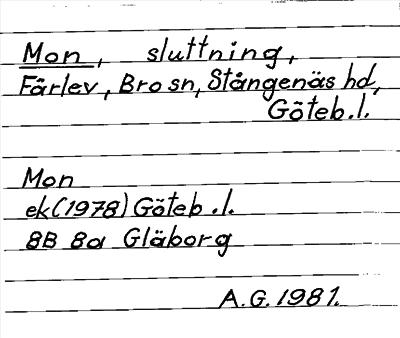 Mon, sluttning,
Färlev, Bro sn, Stångenäs hd,
Göteb.l.
Mon
ek(1978) Göteb.l.
8B 8a Gläborg
A.G. 1981.